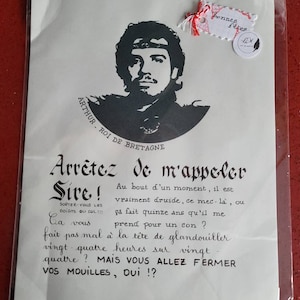 bonnes
fêtes
ARTHUR, ROI DE BRETAGNE
Arrêtez de m'appeler
Sire!
Au bout d'un moment, il est
vraiment druide, ce mec-là, ou
ça fait quinze ans qu'il me
prend pour un con ?
SORTEZ-VOUS LES
DOIGTS DU CUL !!!
Ça vous
fait pas mal à la tête de glandouiller
vingt quatre heures sur vingt
quatre ? MAIS VOUS ALLEZ FERMER
VOS MOUILLES, OUI !?